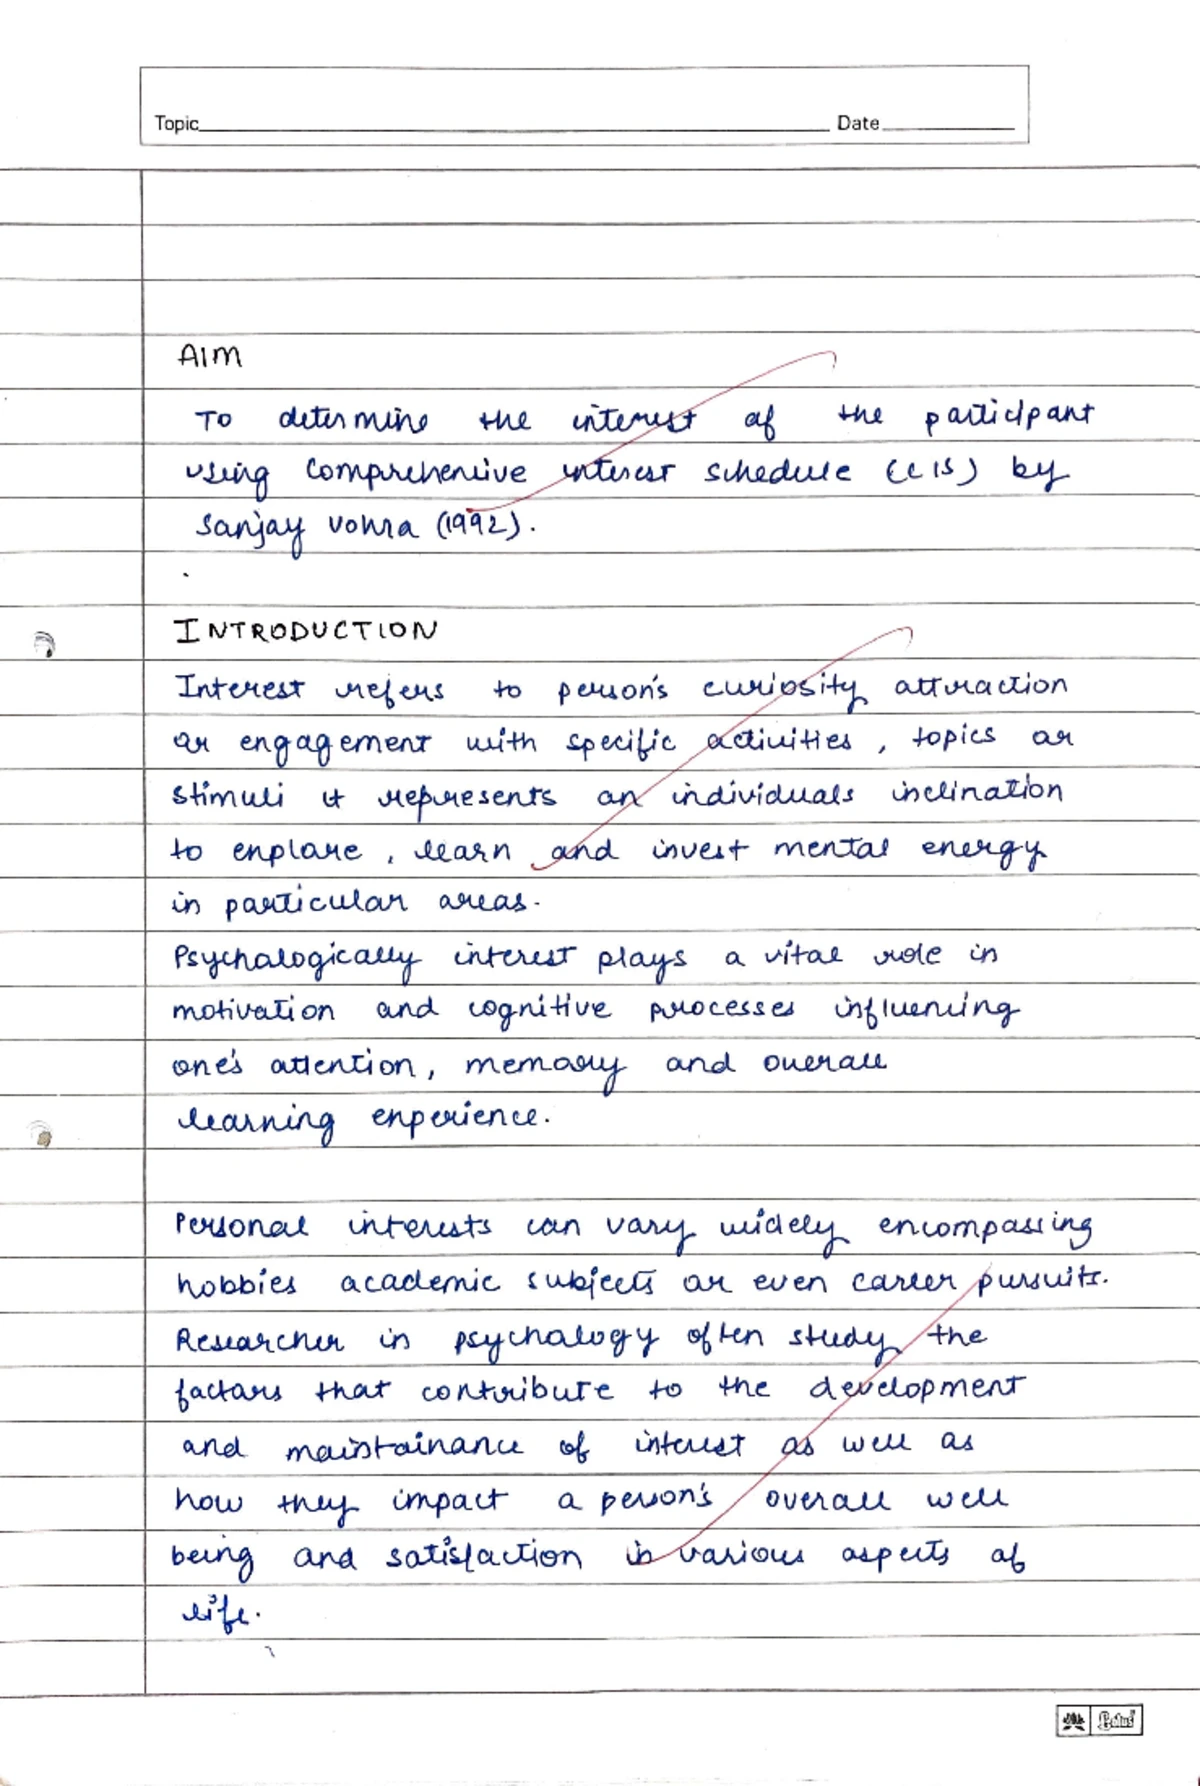 Topic Date
AIM
To determine the interest of the participant
using Comprehensive interest schedule (CIS) by
Sanjay Vohra (1992).
INTRODUCTION
Interest refers to person's curiosity attraction
or engagement with specific activities, topics or
stimuli it represents an individuals inclination
to explore, learn and invest mental energy
in particular areas.
Psychologically interest plays a vital role in
motivation and cognitive processes influencing
one's attention, memory and overall
learning experience.
Personal interests can vary widely encompassing
hobbies academic subjects or even career pursuits.
Researcher in psychology often study the
factors that contribute to the development
and maintainance of interest as well as
how they impact a person's overall well
being and satisfaction in various aspects of
life.
Lotus